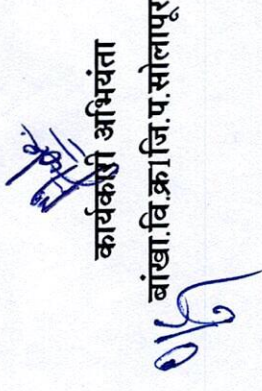 कार्यकारी अभियंता
बांखा.वि.क्र.1जि.प.सोलापूर